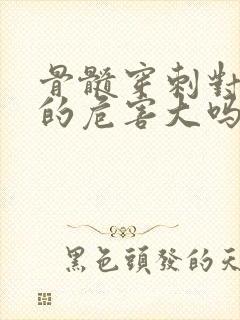 骨髓穿刺對
的危害大嗎
黑色頭發的天